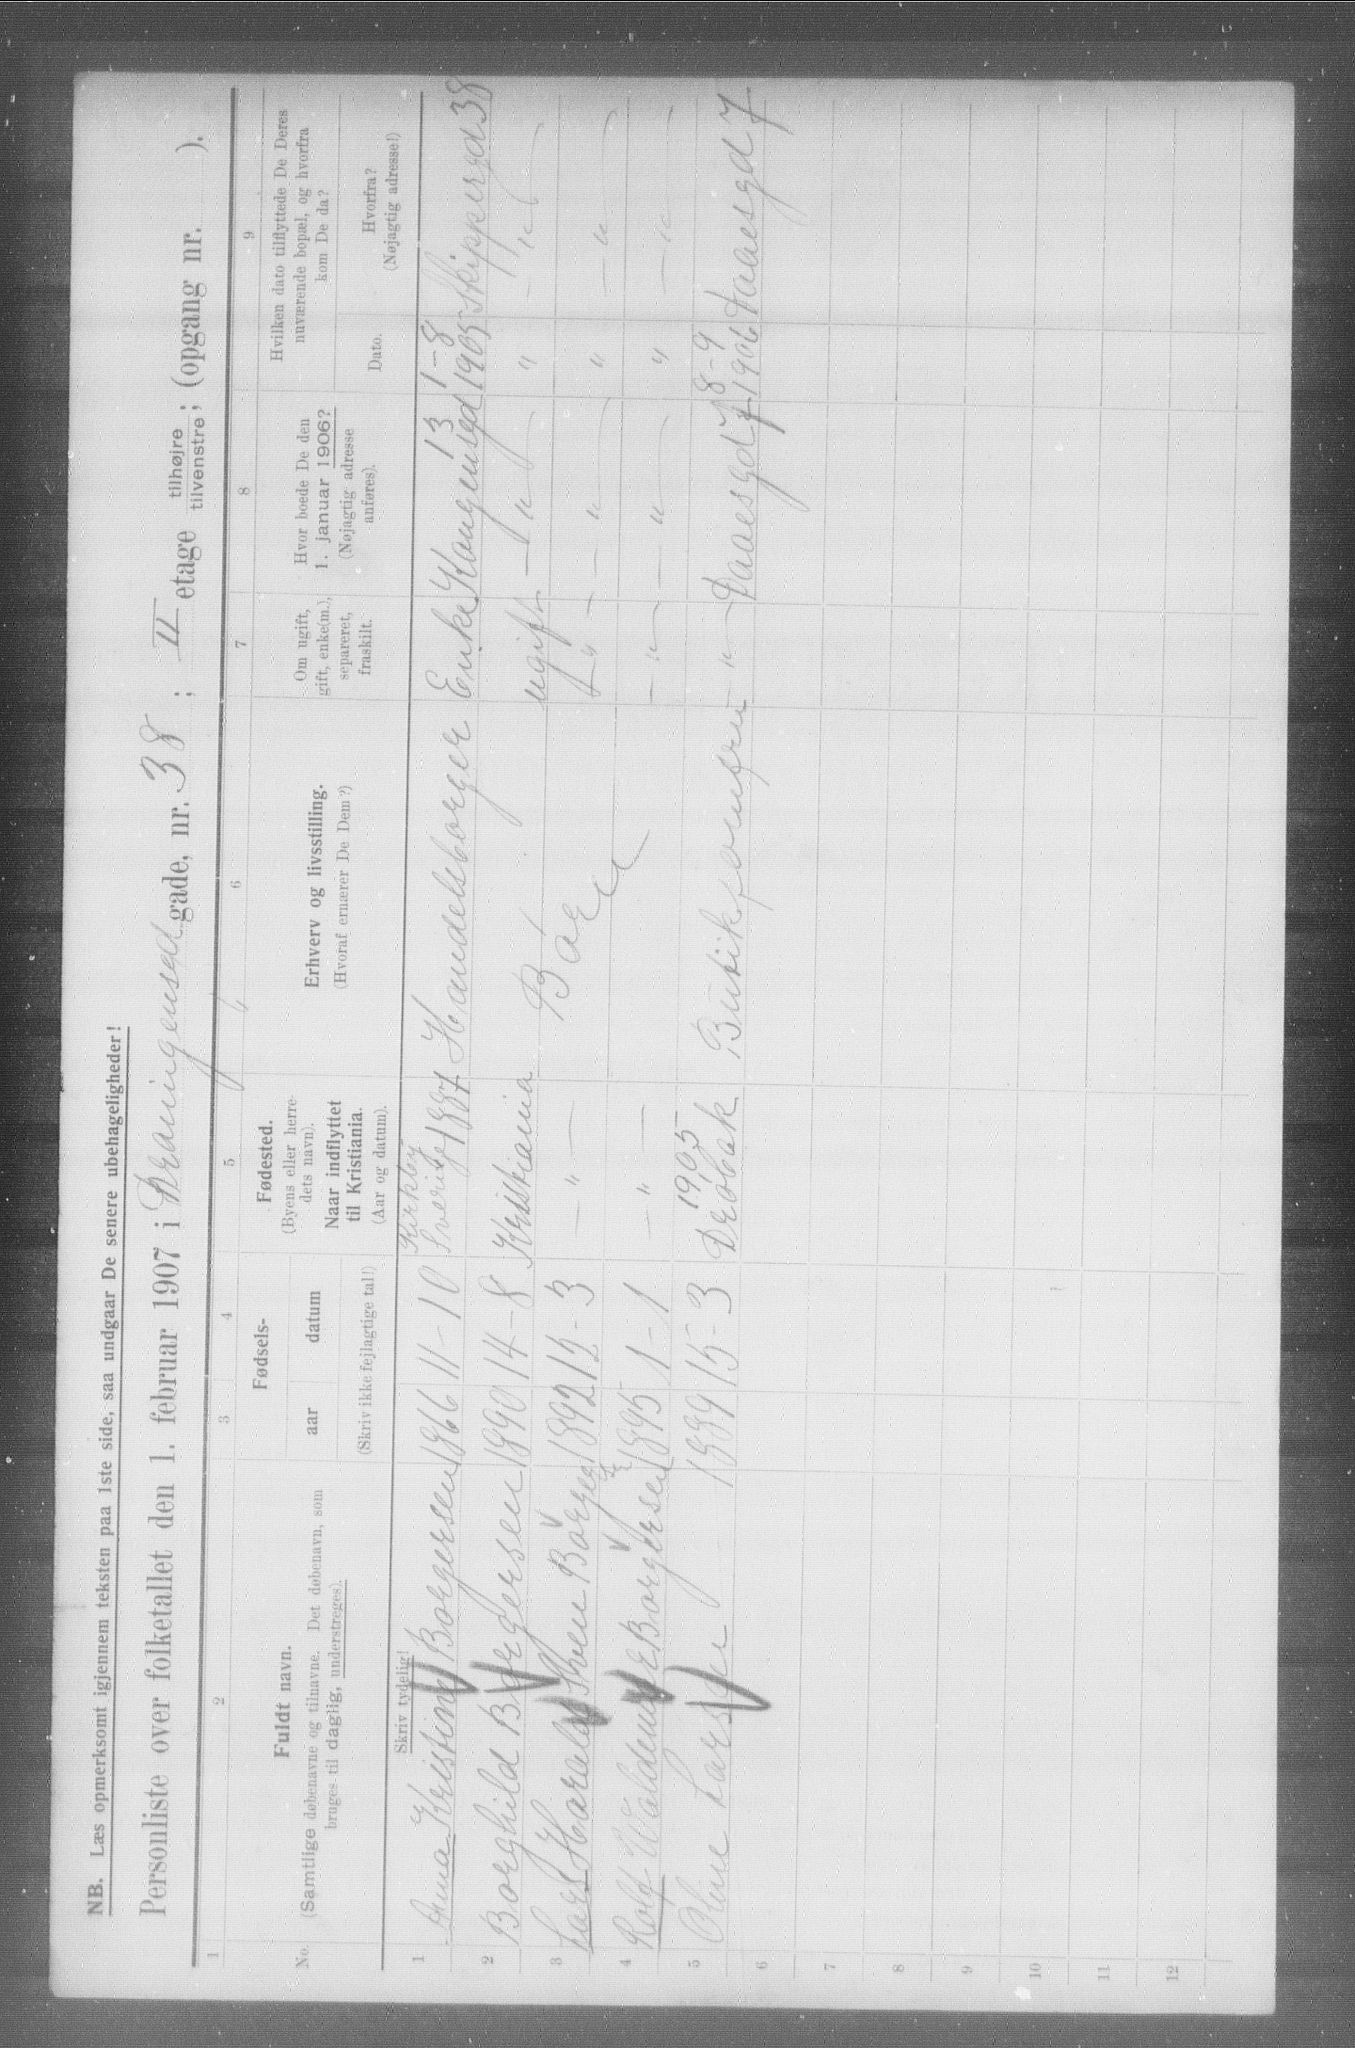 NB. Læs opmerksomt igjennem teksten paa 1ste side, saa undgaar De senere ubehageligheder!
Personliste over folketallet den 1. februar 1907 i gade, nr. 38; II etage tilhøjre tilvenstre; (opgang nr. ).
1 2 3 4 5 6 7 8 9
No.
Fuldt navn.
(Samtlige døbenavne og tilnavne. Det døbenavn, som
bruges til daglig, understreges).
Skriv tydelig!
Fødsels-
aar datum
(Skriv ikke fejlagtige tal!)
Fødested.
(Byens eller herre-
dets navn).
Naar indflyttet
til Kristiania.
(Aar og datum).
Erhverv og livsstilling.
(Hvoraf ernærer De Dem?)
Om ugift,
gift, enke(m.),
separeret,
fraskilt.
Hvor boede De den
1. januar 1906?
(Nøjagtig adresse
anføres).
Hvilken dato tilflyttede De Deres
nuværende bopæl, og hvorfra
kom De da?
Dato.
Hvorfra?
(Nøjagtig adresse!)
1 Anna Kristine Borgersen 1866 11-10 Sverige 1887 Handelsborger Enke 13 1-8 1905 Skippergd 38
2 Borghild Borgersen 1890 14-8 Kristiania ugift — " — " — " —
3 Lars Harald Borger 1892 15-3 — " — Børn — " — — " — " — " —
4 Rolf Valdemar Borgersen 1895 1-1 — " — — " — — " — " — " —
5 Oline Larsen 1889 15-3 1905 Drøbak Butikjomfru — " — Daaesgd 7 8-9 1906 Daaesgd 7
6
7
8
9
10
11
12